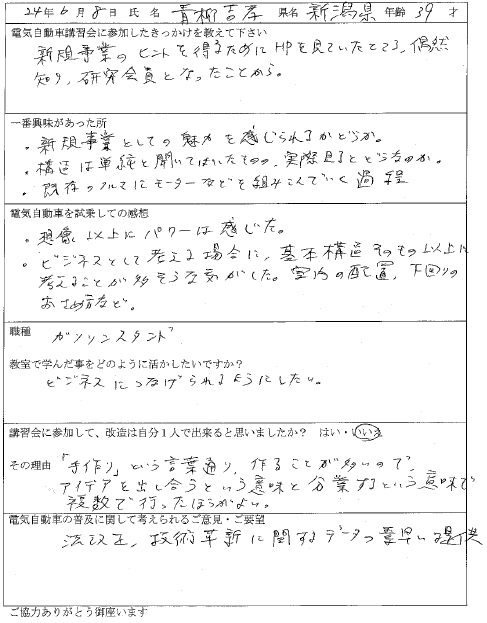 24年6月8日 氏名 青柳吉彦 県名 新潟県 年齢 39 才
電気自動車講習会に参加したきっかけを教えて下さい
新規事業のヒントを得るためにHPを見ていたところ、偶然
知り、研究会員となったことから。
一番興味があった所
・新規事業としての魅力を感じられるかどうか。
・構造は単純と聞いてはいたものの、実際見るとどうなのか。
・既存のクルマにモーターなどを組みこんでいく過程
電気自動車を試乗しての感想
・想像以上にパワーは感じた。
・ビジネスとして考える場合に、基本構造そのもの以上に
考えることが多そうな気がした。室内の配置、下回りの
おさめ方など。
職種 ガソリンスタンド
教室で学んだ事をどのように活かしたいですか？
ビジネスにつなげられるようにしたい。
講習会に参加して、改造は自分1人で出来ると思いましたか？ はい・いいえ
その理由 「手作り」という言葉通り、作ることが多いので、
アイデアを出し合うという意味と分業するという意味で
複数で行ったほうがよい。
電気自動車の普及に関して考えられるご意見・ご要望
法改正、技術革新に関するデータの素早い提供
ご協力ありがとう御座います